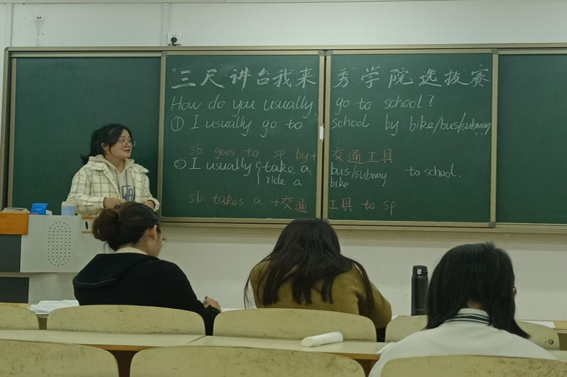 三尺讲台我来秀学院选拔赛
How do you usually go to school?
① I usually go to school by bike/bus/subway
sb goes to sp by+交通工具
② I usually { take a bus/subway to school.
ride a bike
sb takes a +交通工具 to sp